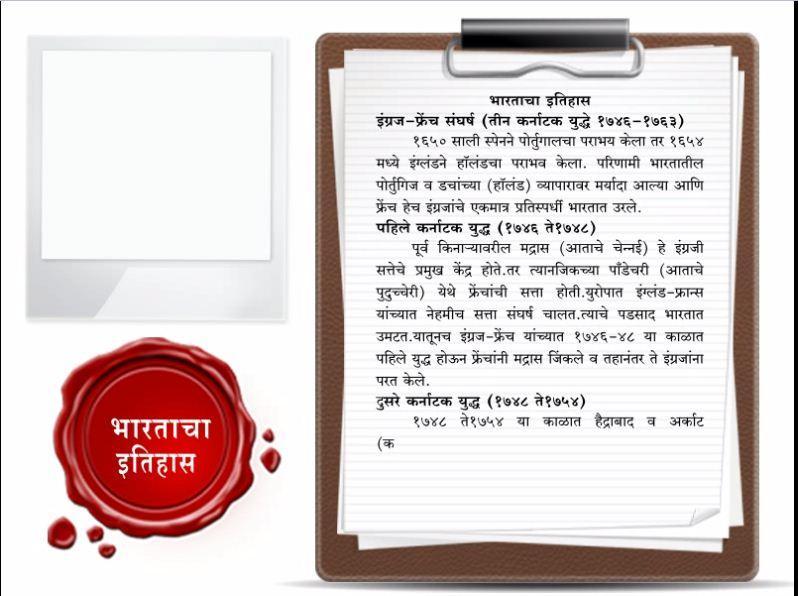 भारताचा इतिहास
इंग्रज-फ्रेंच संघर्ष (तीन कर्नाटक युद्धे १७४६-१७६३)
१६५० साली स्पेनने पोर्तुगालचा पराभय केला तर १६५४
मध्ये इंग्लंडने हॉलंडचा पराभव केला. परिणामी भारतातील
पोर्तुगिज व डचांच्या (हॉलंड) व्यापारावर मर्यादा आल्या आणि
फ्रेंच हेच इंग्रजांचे एकमात्र प्रतिस्पर्धी भारतात उरले.
पहिले कर्नाटक युद्ध (१७४६ ते१७४८)
पूर्व किनाऱ्यावरील मद्रास (आताचे चेन्नई) हे इंग्रजी
सत्तेचे प्रमुख केंद्र होते.तर त्यानजिकच्या पाँडेचरी (आताचे
पुदुच्चेरी) येथे फ्रेंचांची सत्ता होती.युरोपात इंग्लंड-फ्रान्स
यांच्यात नेहमीच सत्ता संघर्ष चालत.त्याचे पडसाद भारतात
उमटत.यातूनच इंग्रज-फ्रेंच यांच्यात १७४६-४८ या काळात
पहिले युद्ध होऊन फ्रेंचांनी मद्रास जिंकले व तहानंतर ते इंग्रजांना
परत केले.
दुसरे कर्नाटक युद्ध (१७४८ ते१७५४)
१७४८ ते१७५४ या काळात हैद्राबाद व अर्काट
(क
भारताचा
इतिहास